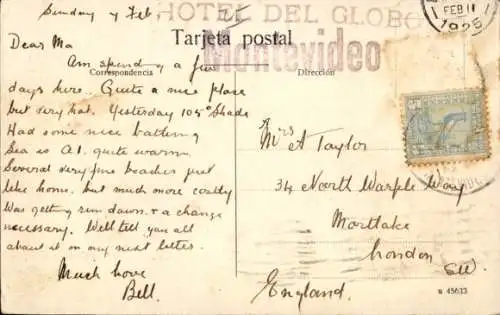 HOTEL DEL GLOBO
Montevideo
FEB 11
1925
Tarjeta postal
Correspondencia
Dirección
Sunday 7 Feb. 25
Dear Ma
Am spendg a few
days here. Quite a nice place
but very hot. Yesterday 105° Shade
Had some nice bathing
Sea is A1. quite warm.
Several very fine beaches just
like home. but much more costly
Was getting run down & a change
necessary. Well tell you all
about it on my next letter.
Much love
Bell.
Mrs A Taylor
34 North Warple Way
Mortlake
London
SW.
England.
45633